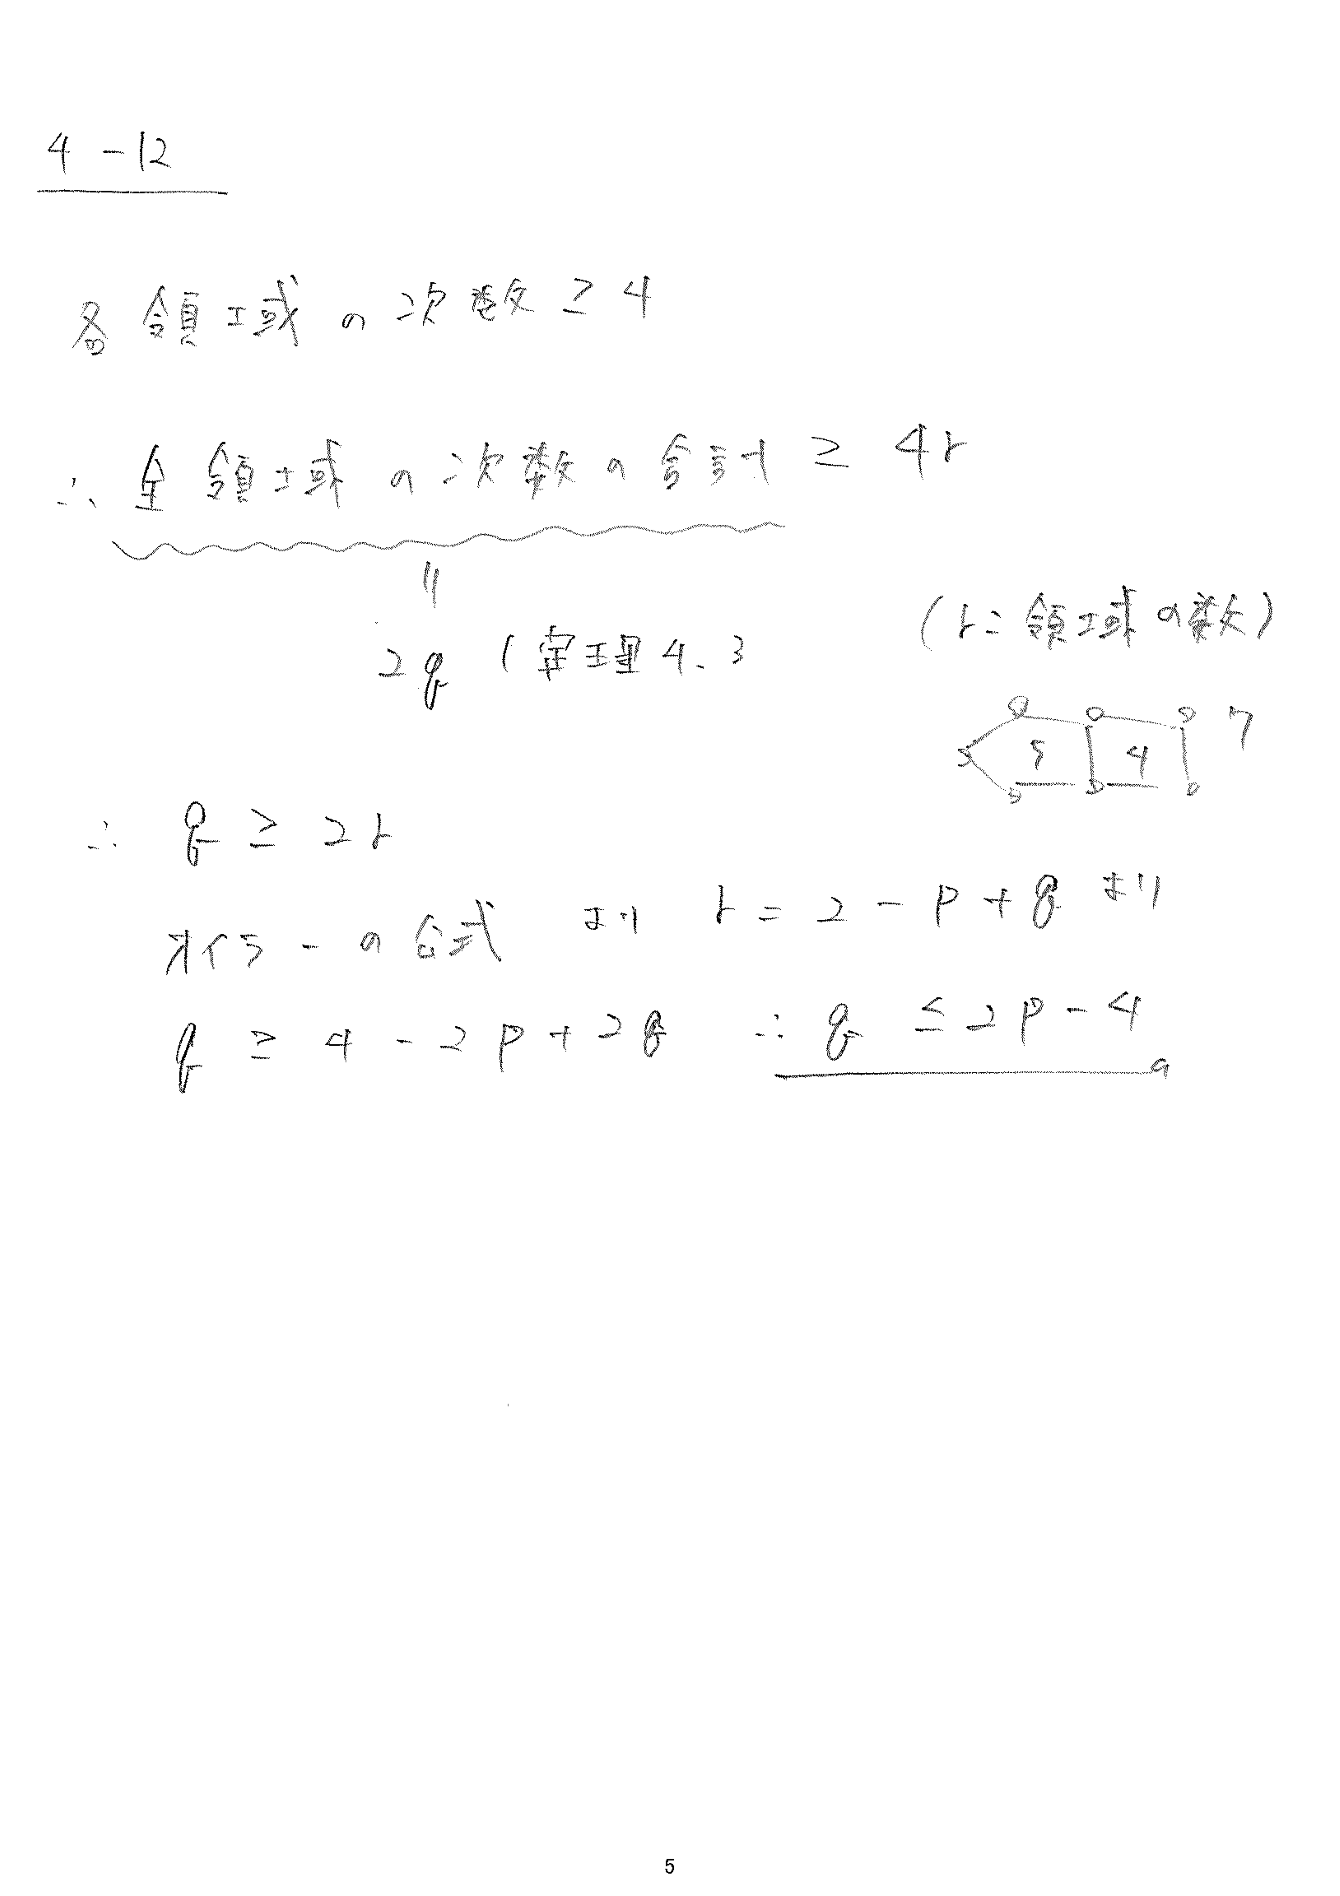 4-12
各領域の次数 ≥ 4
∴ 全領域の次数の合計 ≥ 4r
〃
(r: 領域の数)
2q (定理4.3
5 4 7
∴ q ≥ 2r
オイラーの公式 より r = 2 - p + q より
q ≥ 4 - 2p + 2q ∴ q ≤ 2p - 4
5